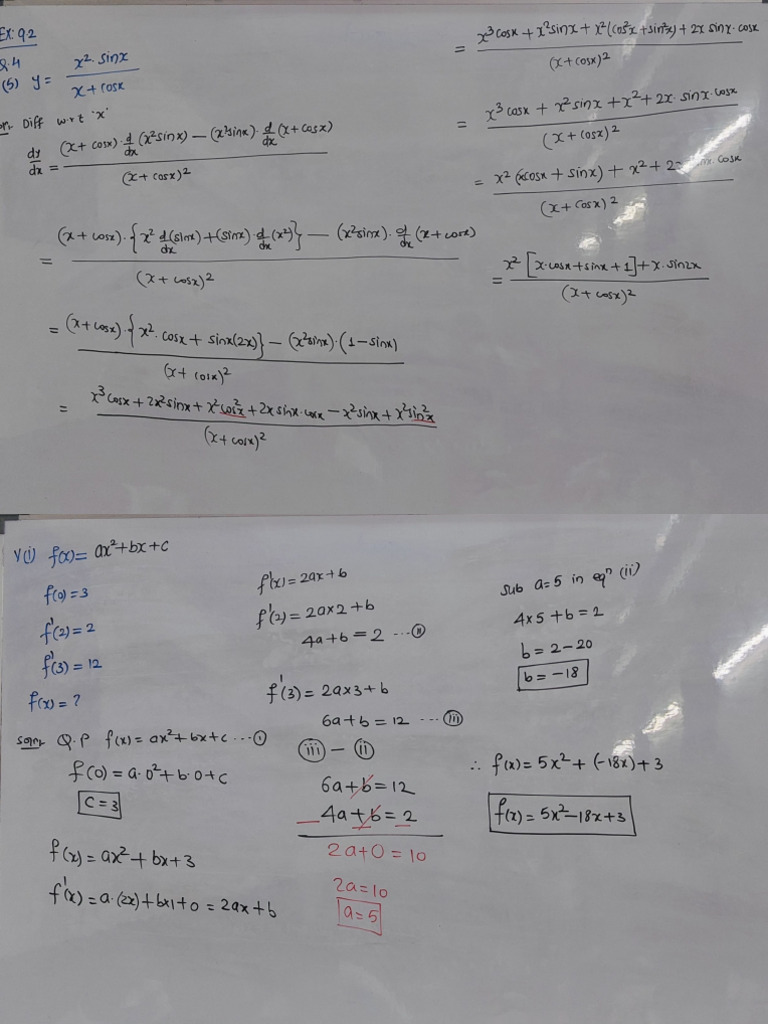 Ex: 9.2
Q.4
(5) y = x²·sinx / x+cosx
Diff w.r.t 'x'
dy/dx = (x+cosx)·d/dx(x²sinx) − (x²sinx)·d/dx(x+cosx) / (x+cosx)²
= (x+cosx)·{x² d/dx(sinx)+(sinx)·d/dx(x²)} − (x²sinx)·d/dx(x+cosx) / (x+cosx)²
= (x+cosx)·{x²·cosx + sinx(2x)} − (x²sinx)·(1−sinx) / (x+cosx)²
= x³cosx + 2x²sinx + x²cos²x + 2x sinx·cosx − x²sinx + x²sin²x / (x+cosx)²
= x³cosx + x²sinx + x²(cos²x + sin²x) + 2x sinx·cosx / (x+cosx)²
= x³cosx + x²sinx + x² + 2x·sinx·cosx / (x+cosx)²
= x²(xcosx + sinx) + x² + 2 cosx / (x+cosx)²
= x²[x·cosx + sinx + 1] + x·sin2x / (x+cosx)²
V(i) f(x) = ax²+bx+c
f(0) = 3
f'(2) = 2
f'(3) = 12
f(x) = ?
soln: Q.P f(x) = ax²+bx+c ...(i)
f(0) = a·0²+b·0+c
c = 3
f(x) = ax²+bx+3
f'(x) = a·(2x)+bx1+0 = 2ax+b
f'(x) = 2ax+b
f'(2) = 2a×2+b
4a+b = 2 ...(ii)
f'(3) = 2a×3+b
6a+b = 12 ...(iii)
(iii) − (ii)
6a+b = 12
4a+b = 2
2a+0 = 10
2a = 10
a = 5
Sub a=5 in eqn (ii)
4×5+b = 2
b = 2−20
b = −18
∴ f(x) = 5x²+(−18x)+3
f(x) = 5x²−18x+3